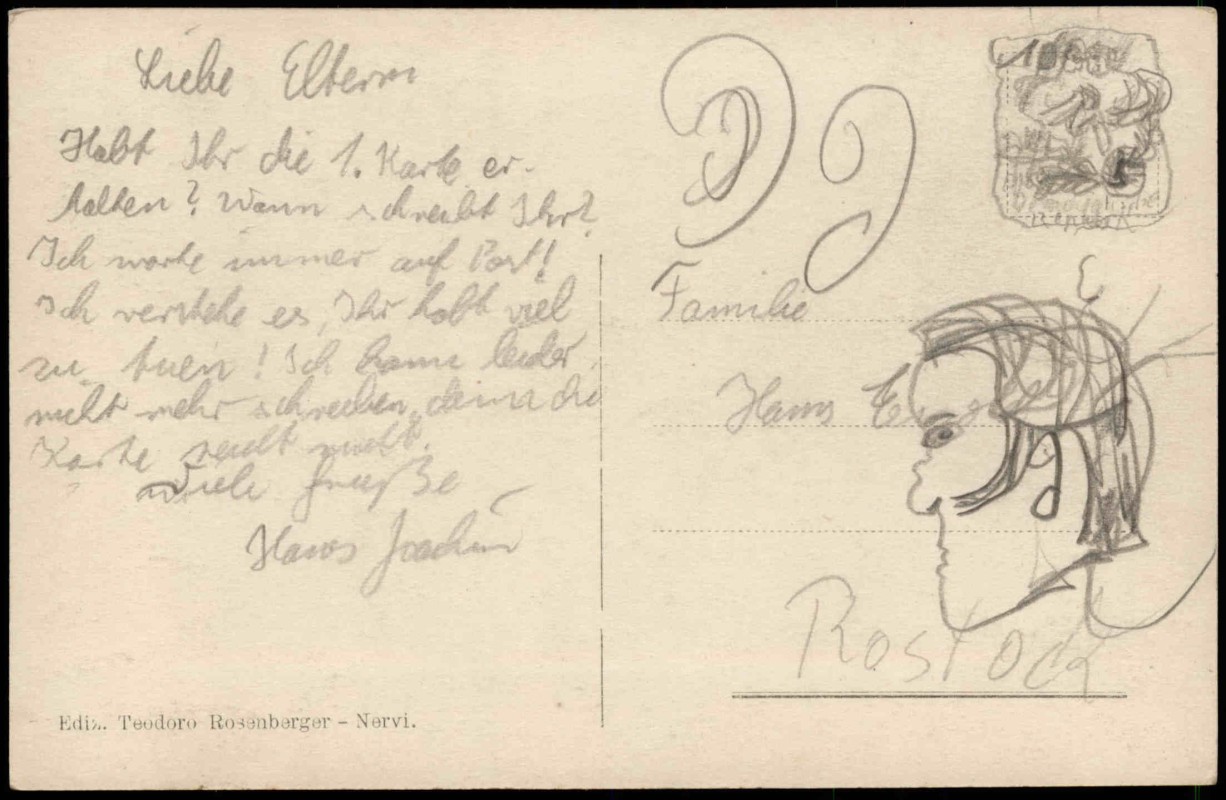 Liebe Eltern
Habt Ihr die 1. Karte er-
halten? Wann schreibt Ihr?
Ich warte immer auf Post!
Ich verstehe es, Ihr habt viel
zu tuen! Ich kann leider
nicht mehr schreiben, denn die
Karte reicht nicht.
Viele Grüße
Hans Joachim
Ediz. Teodoro Rosenberger - Nervi.
10
Familie
Hans
Rostock